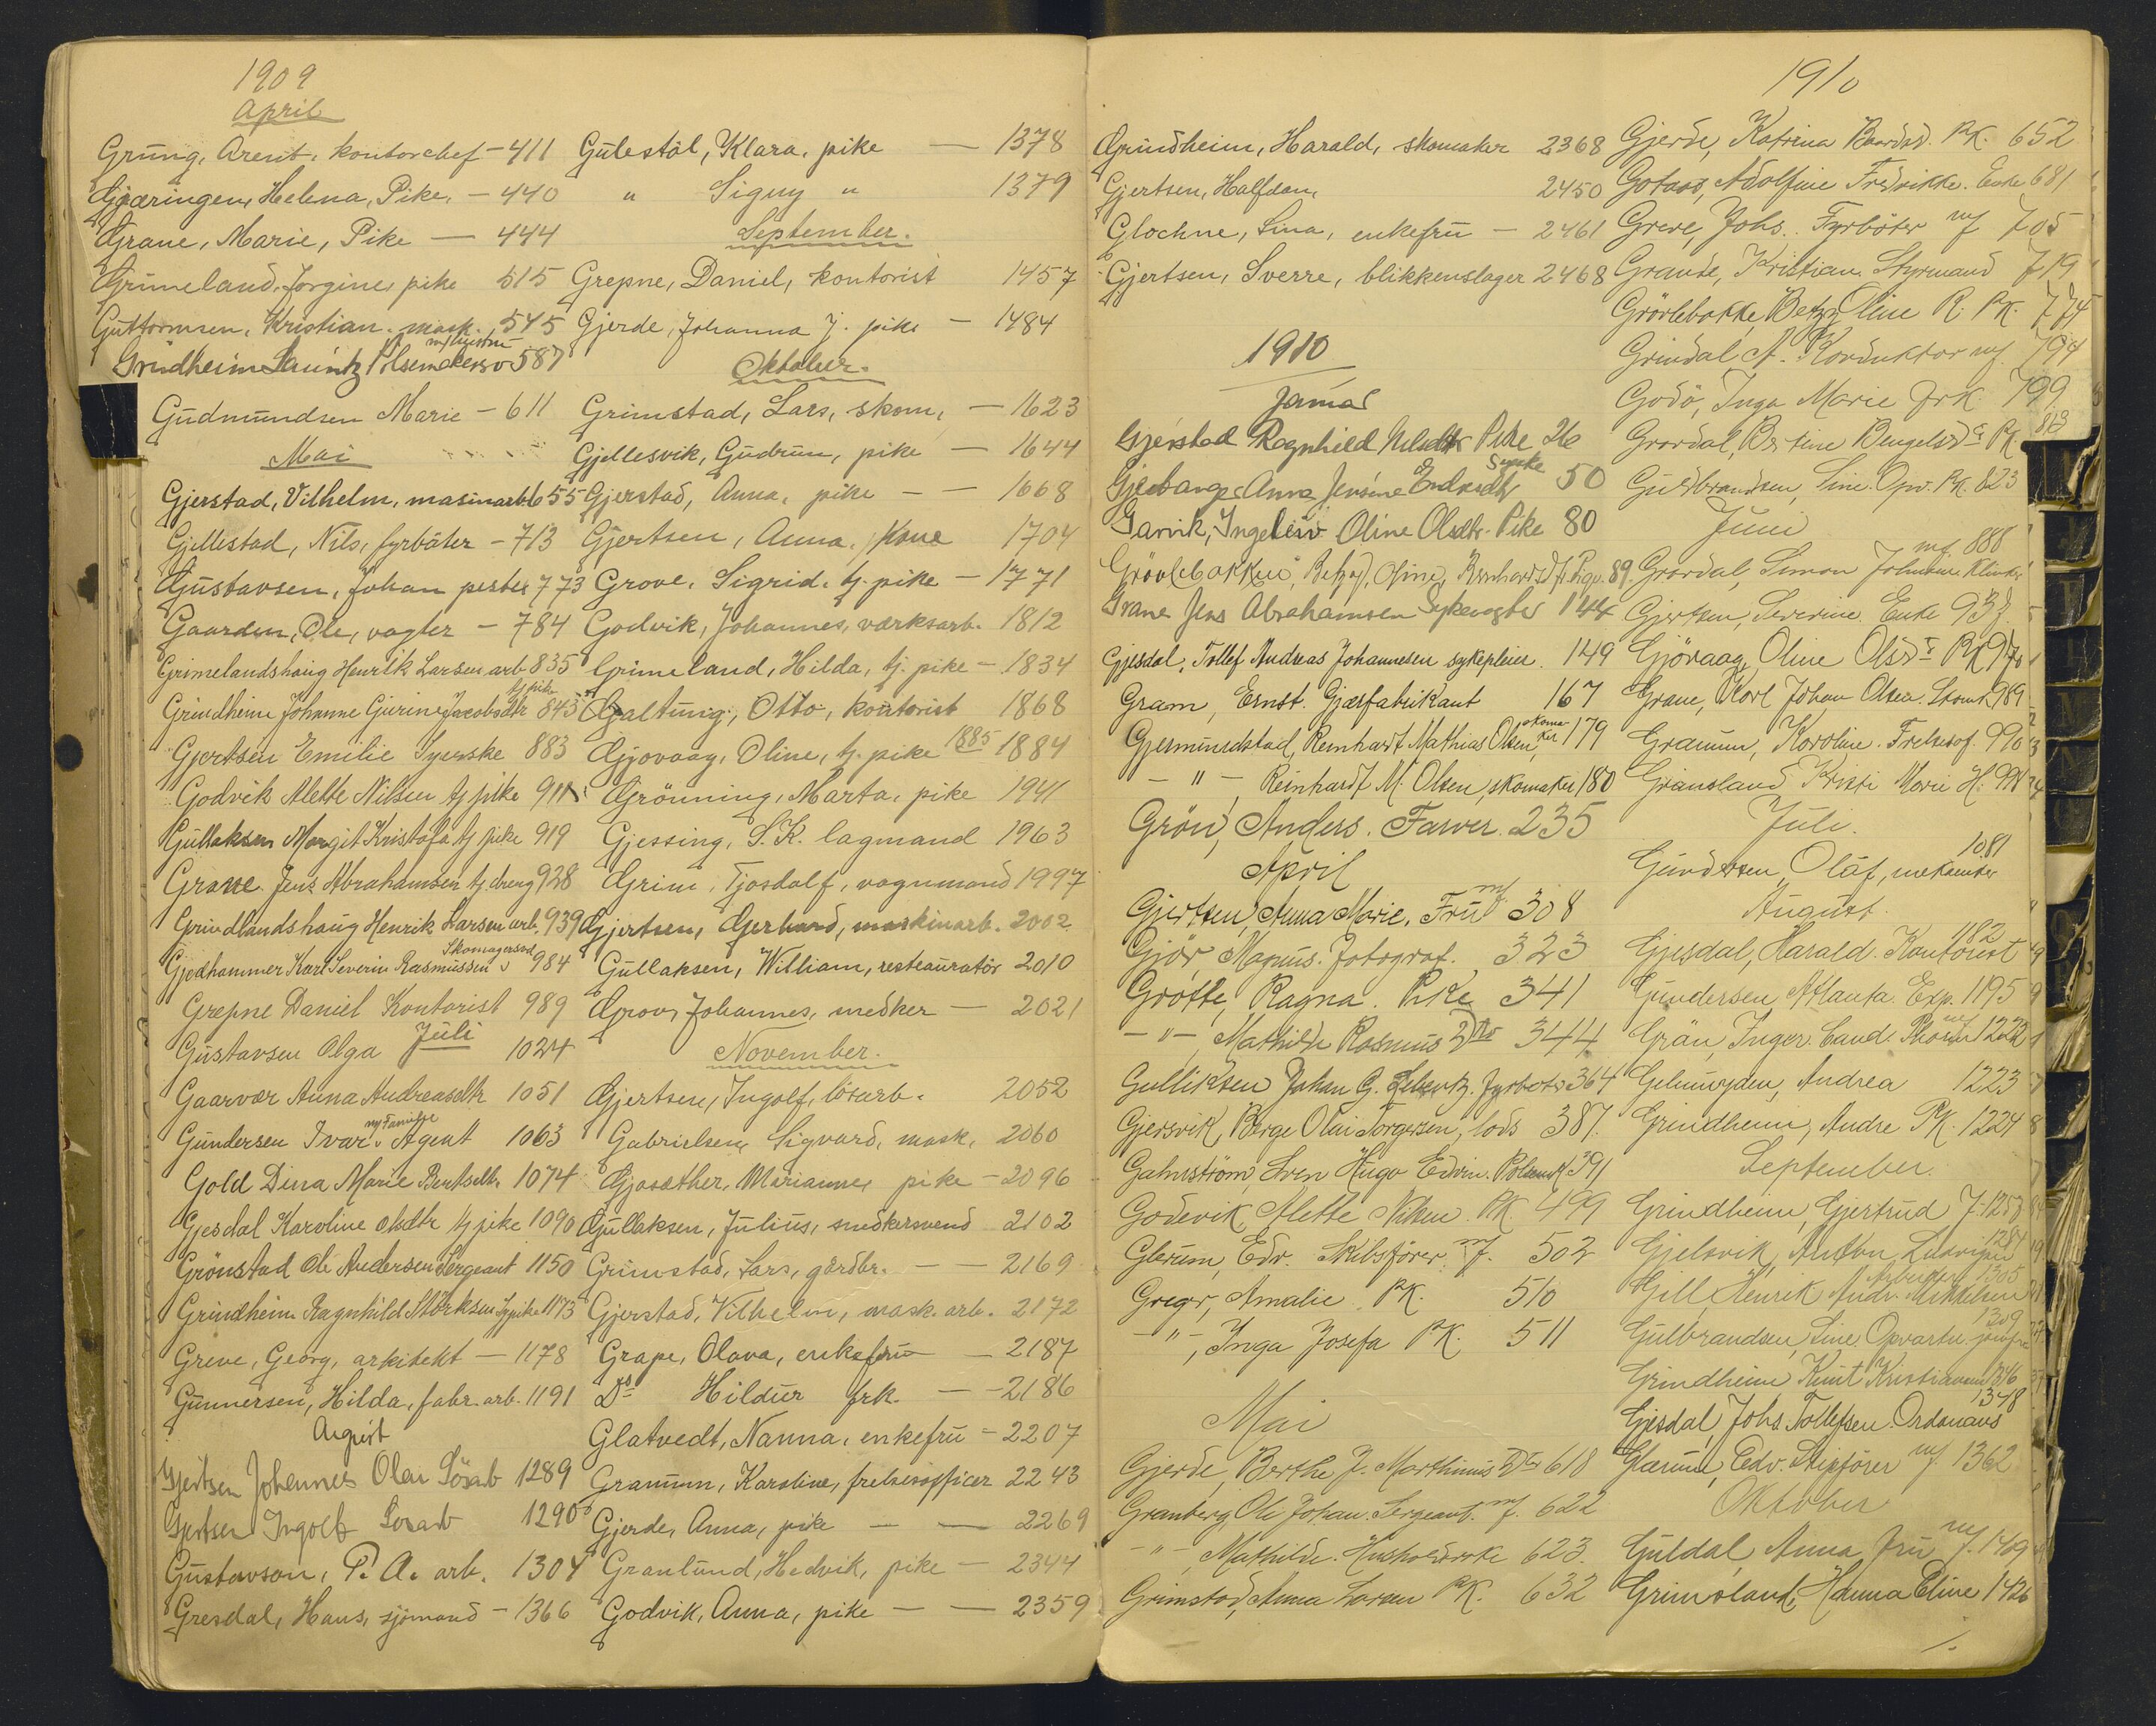 1909
April
Grung, Arent, kontorchef - 411
Gjæringen, Helena, Pike, - 440
Grane, Marie, Pike - 444
Grimeland, Jorgine, pike 515
Guttormsen, Kristian. mask. 545
m/hustru
Grindheim Lauritz 587
Gudmundsen Marie - 611
Mai
Gjerstad, Vilhelm, masinarb. 655
Gjellestad, Nils, fyrbøter - 713
Gustavsen, Johan 773
Gaarden, Ole, vagter - 784
Grimelandshaug Henrik Larsen arb. 835
tj pike
Grindheim Johanne Gurine Jacobsdtr 843
Gjertsen Emilie Syerske 883
Godvik Alette Nilsen tj pike 911
Gullaksen Margit Kristofa tj pike 919
Grane. Jens Abrahamsen tj. dreng 928
Grindlandshaug Henrik Larsen arb. 939
Skomagersvd
Gjedhammer Karl Severin Rasmussen 984
Grepne Daniel Kontorist 989
Juli
Gustavsen Olga 1024
Gaarvær Anna Andreasdtr 1051
m/ Familie
Gundersen Ivar. Agent 1063
Gold Dina Marie Bentsdtr. 1074
Gjesdal Karoline Olsdtr tj pike 1090
Grönstad Ole Andersen Sergeant 1150
Grindheim Ragnhild Störksen Tj pike 1173
Greve, Georg, arkitekt - 1178
Gunnersen, Hilda, fabr. arb. 1191
August
Gjertsen Johannes Olai Lösarb 1289
Gjertsen Ingolf Losarb 1290
Gustavson, P. A. arb. 1304
Gresdal, Hans, sjömand - 1366
Gulestöl, Klara, pike - 1378
" Signy " 1379
September.
Grepne, Daniel, kontorist 1457
Gjerde, Johanna J. pike - 1484
Oktober.
Grimstad, Lars, skom, - 1623
Gjellesvik, Gudrun, pike - 1644
Gjerstad, Anna, pike - - 1668
Gjertsen, Anna, Kone 1704
Grove, Sigrid, tj. pike - 1771
Godvik, Johannes, værksarb. 1812
Grimeland, Hilda, tj. pike - 1834
Galtung, Otto, kontorist 1868
Gjövaag, Oline, tj. pike 1885 1884
Grönning, Marta, pike 1941
Gjessing, S. K. lagmand 1963
Grim, Tjosdolf, vognmand 1997
Gjertsen, Gerhard, maskinarb. 2002
Gullaksen, William, restauratör 2010
Grov, Johannes, snedker - 2021
November.
Gjertsen, Ingolf, lösarb. 2052
Gabrielsen, Sigvard, mask. 2060
Gjøsæther, Marianne, pike - 2096
Gullaksen, Julius, snedkersvend 2102
Grimstad, Lars, gårdbr. - - 2169
Gjerstad, Vilhelm, mask. arb. 2172
Grape, Olava, enkefru - 2187
Do Hildur frk. - - 2186
Glatvedt, Nanna, enkefru - 2207
Gramm, Karoline, frelsesofficer 2243
Gjerde, Anna, pike - - 2269
Granlund, Hedvik, pike - 2344
Godvik, Anna, pike - - 2359
Grindheim, Harald, skomaker 2368
Gjertsen, Halfdan, 2450
Glochne, Lina, enkefru - 2461
Gjertsen, Sverre, blikkenslager 2468
1910
Januar
Gjerstad Ragnhild Pike 26
Syerske
Anna Jensine 50
Garvik, Oline Olsdtr. Pike 80
Grövlebakken, Betzy, Oline, Bernhardsdtr. 89.
Grane Jens Abrahamsen Sykevogter 144
Gjesdal, Tollef Andreas Johannesen sykepleier. 149
Gram, Ernst. Gjærfabrikant 167
Gjermundstad, Reinhardt Mathias Olsen, skomaker 179
- " - Reinhardt M. Olsen, skomaker 180
Grön, Anders. Farver. 235
April
Gjertsen, Anna Marie. Fru mf 308
Gjör, Magnus. Fotograf. 323
Grøtte, Ragna. Pike 341
- " - Mathilde Rasmus Dtr 344
Gulliksen Johan G. Fyrbøt. 364
Gjersvik, Børge Olai Torgersen, lods 387.
Galmström, Sven Hugo Edvin. 391
Godevik, Alette Nilsen. PK 499
Glerum, Edv. Skibsfører mf. 502
Gregr, Amalie PK. 510
- " -, Inga Josefa PK. 511
Mai
Gjerde, Berthe J. Marthinus Dtr 618
Granberg, Ole Johan. Sergeant. mf. 622
- " - Mathilde. Husholderske 623.
Grimstad, Anna PK. 632
1910
Gjerde, Katrina Baardsd. PK. 652
Adolfine Fredrikke. Enke 681
Greve, Johs. Fyrböter mf 705
Grande, Kristian. Styrmand 719
Grövlebakke, Betzy Oline R. PK. 774
Grindal A. Konduktør mf. 794
Godö, Inga Marie Frk. 799
Grøvdal, Bertine PK 813
Gudbrandsen, Line. Opv. PK. 823
Juni
mf. 888
Grøvdal, Simon
Gjertsen, Severine Enke
Gjövaag, Oline Olsdtr PK 970
Grane, Karl Johan Olsen 989
Gramm, Karoline. Frelsesof. 990
Marie H. 991
Juli.
1081
Gundersen Olaf, mekaniker
August.
1182
Gjesdal, Harald. Kontorist
Gundersen, Exp. 1195
Grän, Inger. Cand. 1222
Andrea 1223
Grindheim, Andre PK. 1224
September.
Grindheim, Gjertrud J. 1257
1284
Gjelsvik, Anton
Arbeider 1305
Gjell, Henrik Andr. Mikkelsen
1309
Gulbrandsen, Line. Opvartn. jomfru
Grindheim Knut Kristiansen 1346
1348
Gjesdal, Johs. Tollefsen. Ordonans
Glærum, Edv. Skipförer mf. 1362
Oktober
Guldal, Anna Fru mf. 1409
Grimsland, Hanna Eline 1426